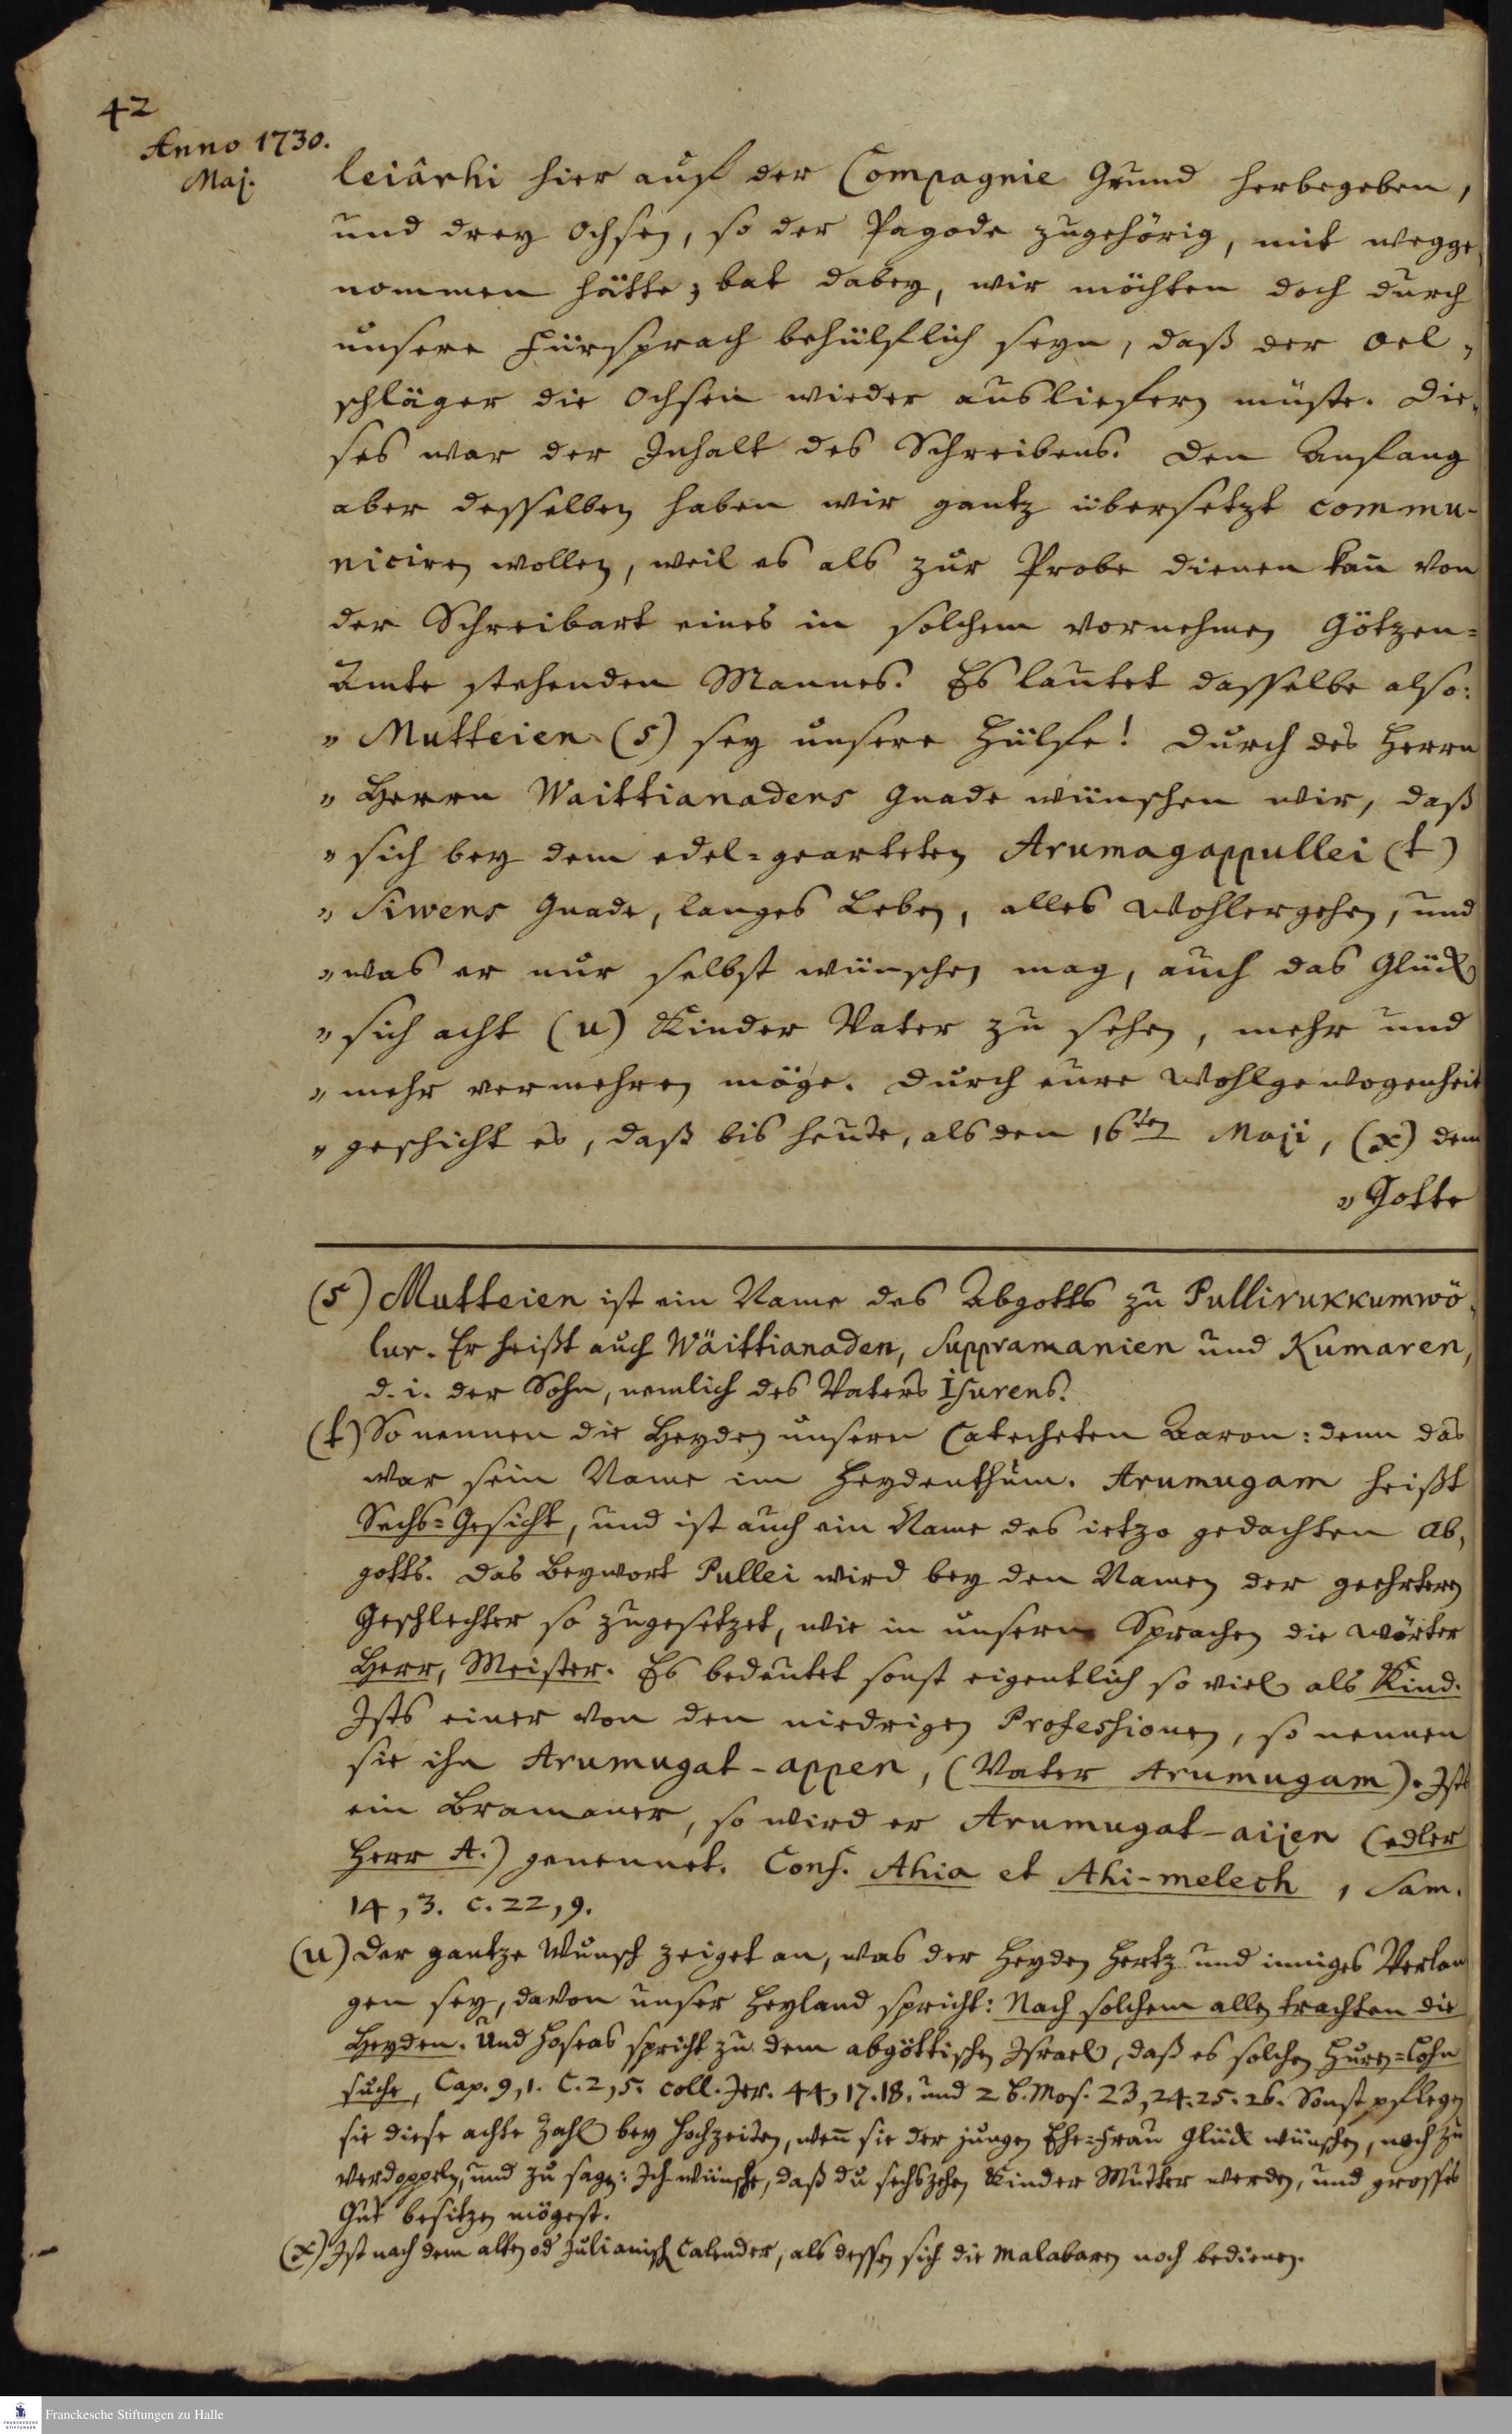 42
Anno 1730.
Maj.
leiârhi hier auf der Compagnie Grund herbegeben,
und drey Ochsen, so der Pagode zugehörig, mit wegge„
nommen hätte; bat dabey, wir möchten doch durch
unsere Fürsprach behülflich seyn, daß der Oel„
schläger die Ochsen wieder ausliefern müste. Die„
ses war der Inhalt des Schreibens. Den Anfang
aber desselben haben wir gantz übersetzt commu-
niciren wollen, weil es als zur Probe dienen kan̄ von
der Schreibart eines in solchem vornehmen Götzen=
Amte stehenden Mannes. Es lautet dasselbe also:
„ Mutteien (s) sey unsere Hülfe! Durch des Herrn
„ Herrn Waittianadens Gnade wünschen wir, daß
„ sich bey dem edel=gearteten Arumagappullei (t)
„ Siwens Gnade, langes Leben, alles Wohlergehen, und
„ was er nur selbst wünschen mag, auch das Glück
„ sich acht (u) Kinder Vater zu sehen, mehr und
„ mehr vermehren möge. Durch eure Wohlgewogenheit
„ geschicht es, daß bis heute, als den 16ten Maji, (x) dem
„ Gotte
(s) Mutteien ist ein Name des Abgotts zu Pullirukkumwö„
lur. Er heißt auch Wäittianaden, Suppramanien und Kumaren,
d. i. der Sohn, nemlich des Vaters Isurens.
(t) So nennen die Heyden unsern Catecheten Aaron: denn das
war sein Name im Heydenthum. Arumugam heißt
Sechs=Gesicht, und ist auch ein Name des ietzo gedachten Ab„
gotts. Das Beywort Pullei wird bey den Namen der geehrtern
Geschlechter so zugesetzet, wie in unsern Sprachen die Wörter
Herr, Meister. Es bedeutet sonst eigentlich so viel als Kind.
Ists einer von den niedrigen Professionen, so nennen
sie ihn Arumugat-appen, (Vater Arumugam). Ists
ein Bramaner, so wird er Arumugat-aijen (edler
Herr A.) genennet. Conf. Ahia et Ahi-melech 1 Sam.
14, 3. c. 22, 9.
(u) Der gantze Wunsch zeiget an, was der Heyden Hertz und inniges Verlan
gen sey, davon unser Heyland spricht: Nach solchem allen trachten die
Heyden. Und Hoseas spricht zu dem abgöttischen Israel, daß es solchen Huren=Lohn
suche, Cap. 9, 1. C. 2, 5. coll. Jer. 44, 17. 18. und 2 B. Mos. 23, 24. 25. 26. Sonst pflegen
sie diese achte Zahl bey Hochzeiten, wen̄ sie der jungen Ehe=Frau Glück wünschen, noch zu
verdoppeln, und zu sagen: Ich wünsche, daß du sechszehen Kinder Mutter werden, und grosses
Gut besitzen mögest.
(x) Ist nach dem alten od Julianisch Calender, als dessen sich die Malabaren noch bedienen.
FRANCKESCHE STIFTUNGEN
Franckesche Stiftungen zu Halle